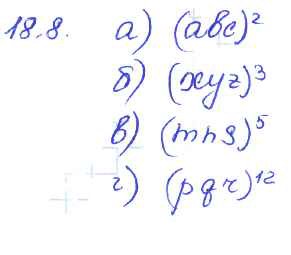 18.8. а) (abc)²
б) (xyz)³
в) (mns)⁵
г) (pqr)¹²